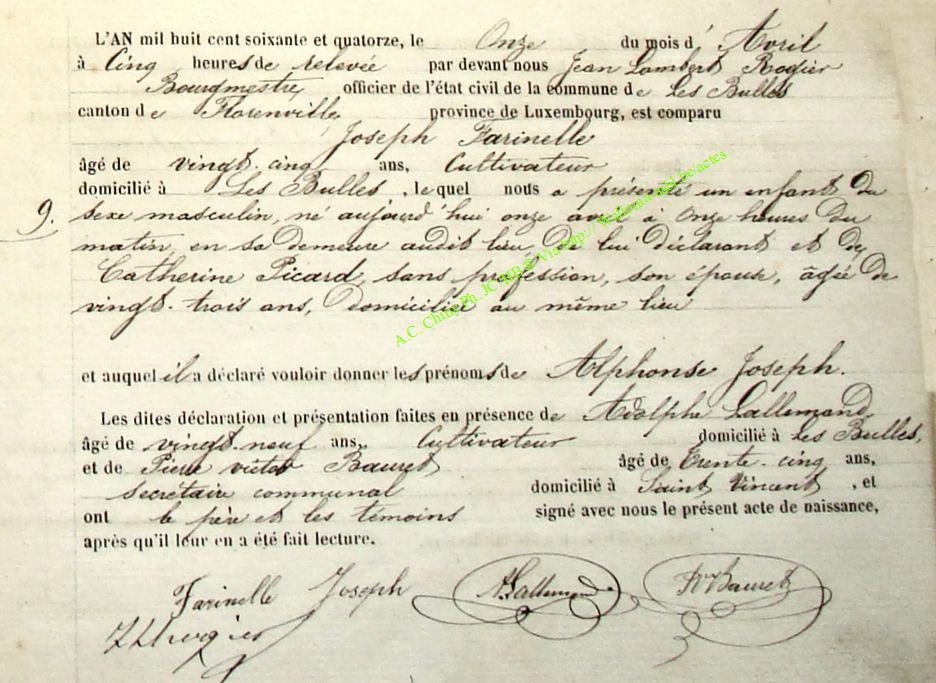 L'AN mil huit cent soixante et quatorze, le Onze du mois d' Avril
à Cinq heures de relevée par devant nous Jean Lambert Rogier
Bourgmestre officier de l'état civil de la commune de Les Bulles
canton de Florenville province de Luxembourg, est comparu
Joseph Farinelle
âgé de vingt-cinq ans, Cultivateur
domicilié à Les Bulles, lequel nous a présenté un enfant du
9. sexe masculin, né aujourd'hui onze avril à Onze heures du
matin, en sa demeure audit lieu, de lui déclarant et de
Catherine Picard, sans profession, son épouse, âgée de
vingt-trois ans, domiciliée au même lieu
et auquel il a déclaré vouloir donner les prénoms de Alphonse Joseph.
Les dites déclaration et présentation faites en présence de Adolphe Lallemand,
âgé de vingt-neuf ans, Cultivateur domicilié à Les Bulles,
et de Pierre victor Bauret âgé de Trente-cinq ans,
secrétaire communal domicilié à Saint Vincent, et
ont le père et les témoins signé avec nous le présent acte de naissance,
après qu'il leur en a été fait lecture.
Farinelle Joseph ALallemand Bauret